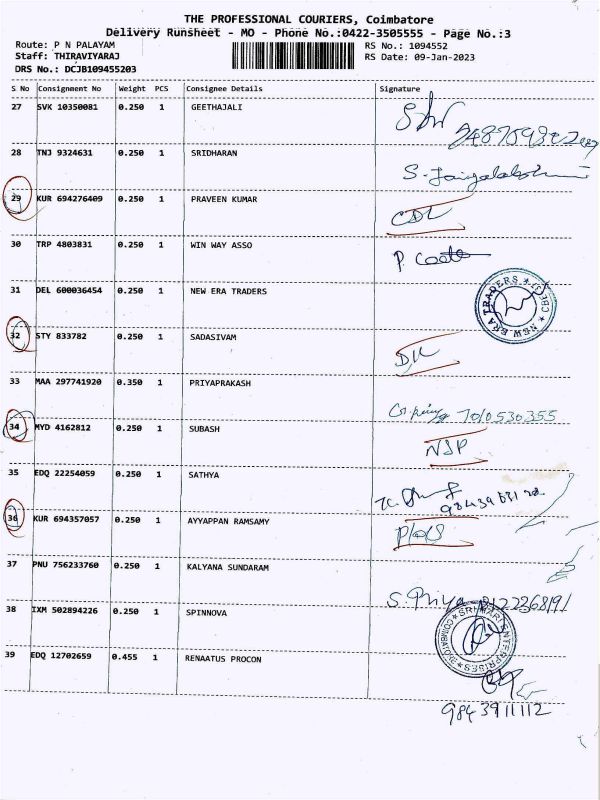 THE PROFESSIONAL COURIERS, Coimbatore
Delivery Runsheet - MO - Phone No.:0422-3505555 - Page No.:3
Route: P N PALAYAM
Staff: THIRAVIYARAJ
DRS No.: DCJB109455203
RS No.: 1094552
RS Date: 09-Jan-2023
S No Consignment No Weight PCS Consignee Details Signature
27 SVK 10350081 0.250 1 GEETHAJALI
28 TNJ 9324631 0.250 1 SRIDHARAN
29 KUR 694276409 0.250 1 PRAVEEN KUMAR
30 TRP 4803831 0.250 1 WIN WAY ASSO
31 DEL 600036454 0.250 1 NEW ERA TRADERS
NEW ERA TRADERS CBE
32 STY 833782 0.250 1 SADASIVAM
33 MAA 297741920 0.350 1 PRIYAPRAKASH 7010530355
34 MYD 4162812 0.250 1 SUBASH NSP
35 EDQ 22254059 0.250 1 SATHYA
36 KUR 694357057 0.250 1 AYYAPPAN RAMSAMY
37 PNU 756233760 0.250 1 KALYANA SUNDARAM S. Priya
38 IXM 502894226 0.250 1 SPINNOVA
SRI MARI ENTERPRISES COIMBATORE
39 EDQ 12702659 0.455 1 RENAATUS PROCON
9843911112